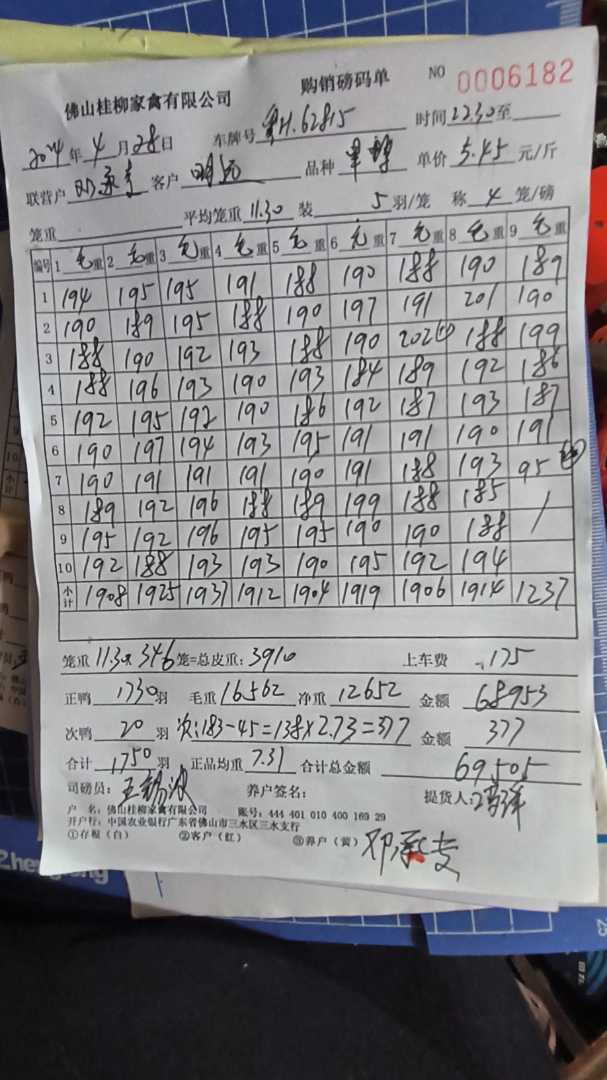 购销磅码单 NO 0006182
佛山桂柳家禽有限公司
2024年4月28日 车牌号 粤H.62815 时间 22.30 至
联营户 邓承专 客户 品种 单价 5.45 元/斤
笼重 平均笼重 11.30 装 5 羽/笼 称 4 笼/磅
编号 1 毛重 2 毛重 3 毛重 4 毛重 5 毛重 6 毛重 7 毛重 8 毛重 9 毛重
1 194 195 195 191 188 190 188 190 189
2 190 189 195 188 190 197 191 201 190
3 188 190 192 193 188 190 202 188 199
4 188 196 193 190 193 184 189 192 186
5 192 195 192 190 186 192 187 193 187
6 190 197 194 193 195 191 191 190 191
7 190 191 191 191 190 191 188 193 95
8 189 192 196 188 189 199 188 185 /
9 195 192 196 195 195 190 190 188
10 192 188 193 193 190 195 192 194
小计 1908 1925 1937 1912 1904 1919 1906 1914 1237
笼重 11.30x346 笼=总皮重: 3910 上车费 175
正鸭 1730 羽 毛重 16562 净重 12652 金额 68953
次鸭 20 羽 次:183-45=138x2.73=377 金额 377
合计 1750 羽 正品均重 7.31 合计总金额 69505
司磅员: 王锡波 养户签名: 提货人:
户 名: 佛山桂柳家禽有限公司 账号: 444 401 010 400 169 29
开户行: 中国农业银行广东省佛山市三水区三水支行
①存根(白) ②客户(红) ③养户(黄) 邓承专